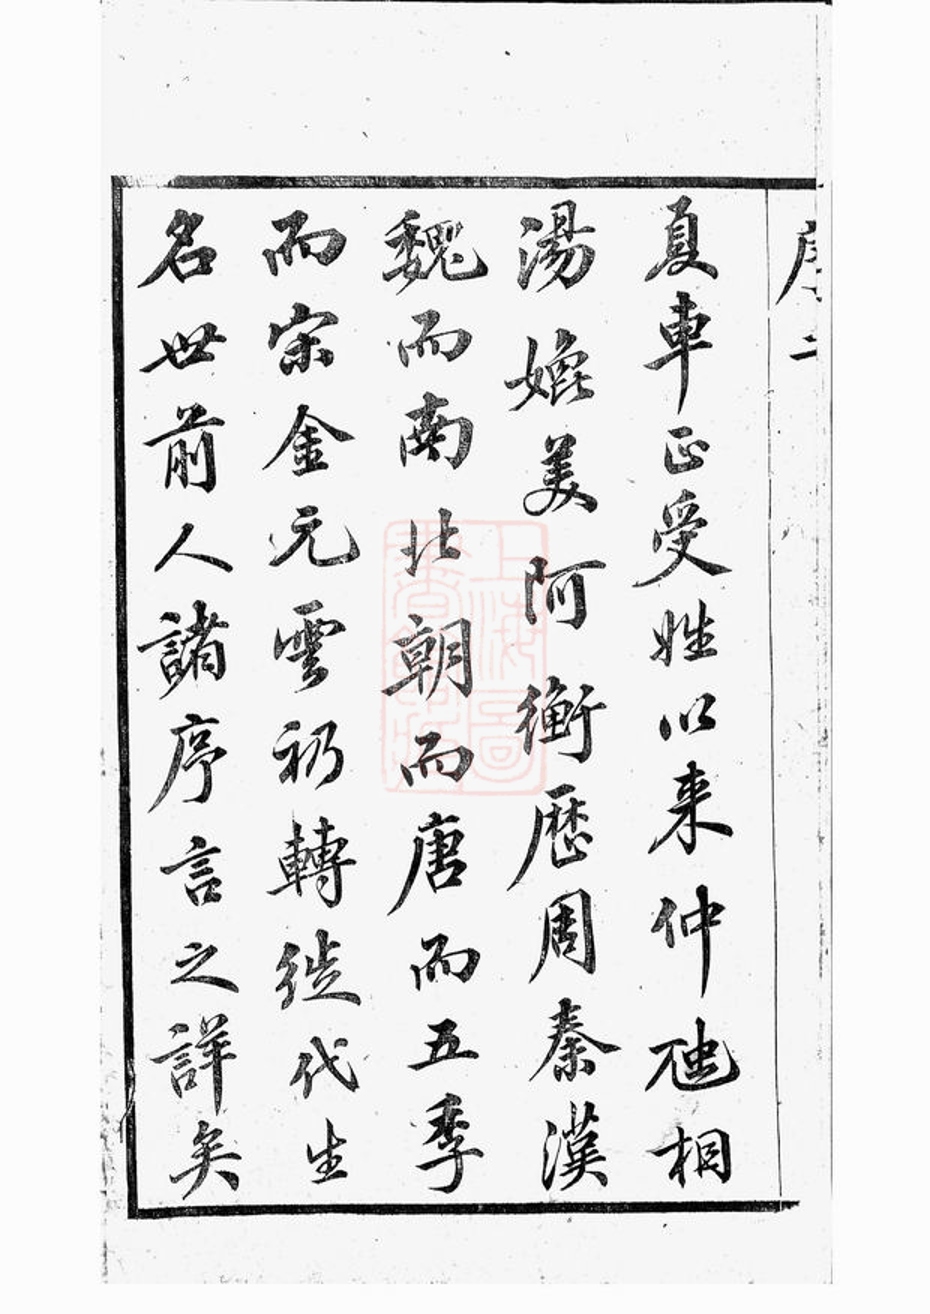 序二
夏車正受姓以来仲虺相
湯媲美阿衡歴周秦漢
魏而南北朝而唐而五季
而宋金元雲礽轉徙代生
名世前人諸序言之詳矣
上海圖書館藏